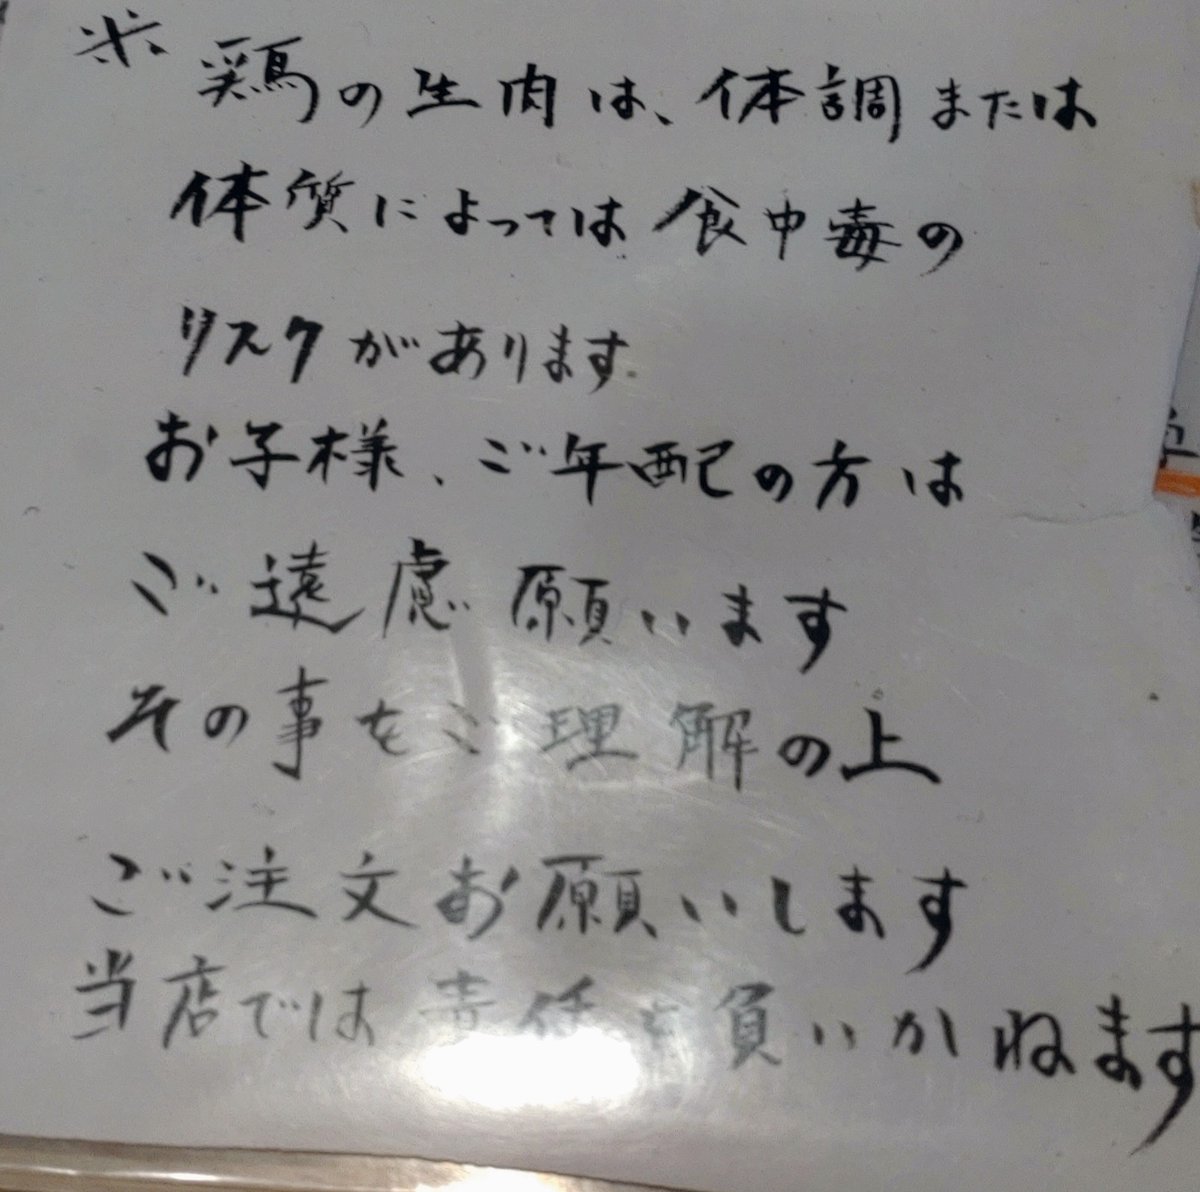 ※鶏の生肉は、体調または
体質によっては食中毒の
リスクがあります。
お子様、ご年配の方は
ご遠慮願います
その事をご理解の上
ご注文お願いします
当店では責任を負いかねます